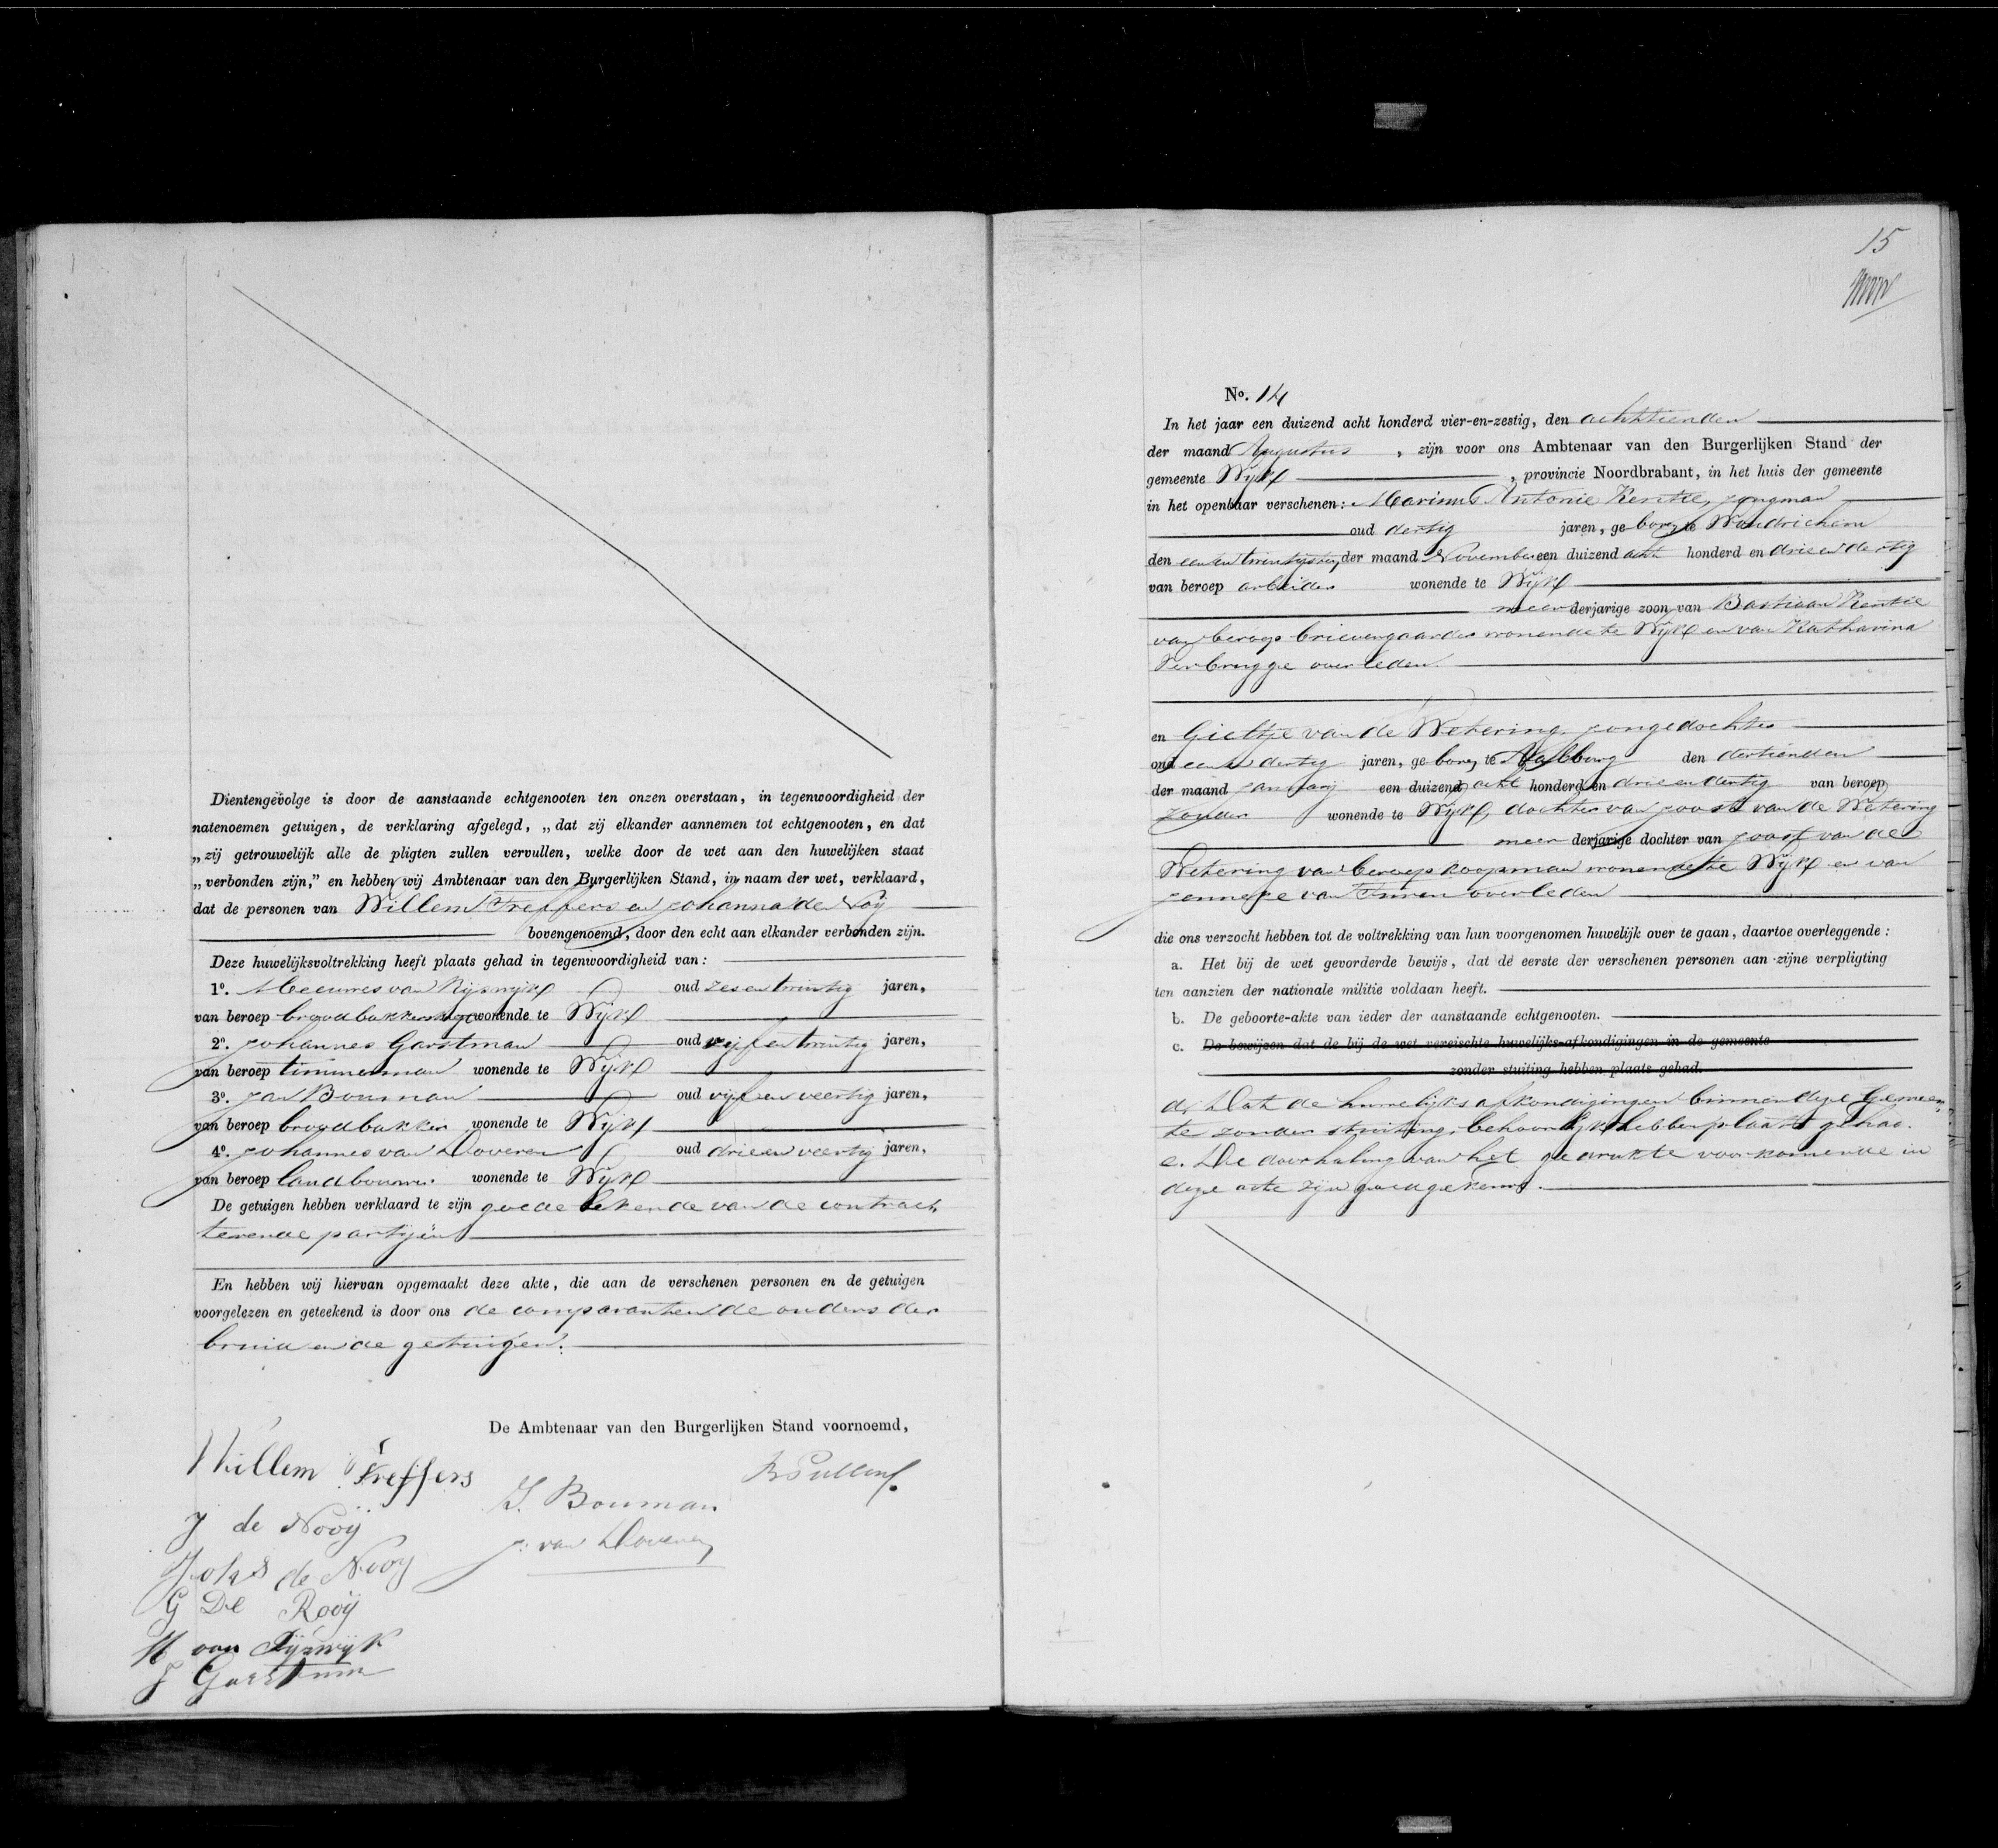 Dientengevolge is door de aanstaande echtgenooten ten onzen overstaan, in tegenwoordigheid der
natenoemen getuigen, de verklaring afgelegd, „dat zij elkander aannemen tot echtgenooten, en dat
„zij getrouwelijk alle de pligten zullen vervullen, welke door de wet aan den huwelijken staat
„verbonden zijn,” en hebben wij Ambtenaar van den Burgerlijken Stand, in naam der wet, verklaard,
dat de personen van Willem Treffers en Johanna de Nooij
bovengenoemd, door den echt aan elkander verbonden zijn.
Deze huwelijksvoltrekking heeft plaats gehad in tegenwoordigheid van:
1o. Meeuwes van Rijswijk oud zes en twintig jaren,
van beroep broodbakkers wonende te Wijk
2o. Johannes Garstman oud vijf en twintig jaren,
van beroep timmerman wonende te Wijk
3o. Jan Bouman oud vijf en veertig jaren,
van beroep broodbakker wonende te Wijk
4o. Johannes van Doveren oud drie en veertig jaren,
van beroep landbouwer wonende te Wijk
De getuigen hebben verklaard te zijn goede bekende van de contrac
terende partijen
En hebben wij hiervan opgemaakt deze akte, die aan de verschenen personen en de getuigen
voorgelezen en geteekend is door ons de comparanten de ouders der
bruid en de getuigen.
De Ambtenaar van den Burgerlijken Stand voornoemd,
Willem Treffers
J. Bouman
J de Nooij
J. van Doveren
Johs de Nooy
G De Rooij
M van Rijswijk
J Garstman
15
No. 14
In het jaar een duizend acht honderd vier-en-zestig, den achttienden
der maand Augustus, zijn voor ons Ambtenaar van den Burgerlijken Stand der
gemeente Wijk, provincie Noordbrabant, in het huis der gemeente
in het openbaar verschenen: Marinus Antonie Rentie, jongman
oud dertig jaren, geboren te Woudrichem
den een en twintigsten der maand November een duizend acht honderd en drie en dertig
van beroep arbeider wonende te Wijk
meerderjarige zoon van Bastiaan Rentie
van beroep brievengaarder wonende te Wijk en van Katharina
Verbrugge overleden
en Gieltje van de Wetering jongedochter
oud een en dertig jaren, geboren te Aalburg den dertienden
der maand Januarij een duizend acht honderd en drie en dertig van beroep
zonder wonende te Wijk, dochter van Joost van de Wetering
meerderjarige dochter van Joost van de
Wetering van beroep koopman wonende te Wijk en van
Jenneke van overleden
die ons verzocht hebben tot de voltrekking van hun voorgenomen huwelijk over te gaan, daartoe overleggende:
a. Het bij de wet gevorderde bewijs, dat de eerste der verschenen personen aan zijne verpligting
ten aanzien der nationale militie voldaan heeft.
b. De geboorte-akte van ieder der aanstaande echtgenooten.
c. De bewijzen dat de bij de wet vereischte huwelijks-afkondigingen in de gemeente
zonder stuiting hebben plaats gehad.
d. Dat de huwelijks afkondigingen binnen deze Gemeen
te zonder stuiting behoorlijk hebben plaats gehad.
e. De doorhaling van het gedrukte voorkomende in
deze acte zijn goedgekeurd.